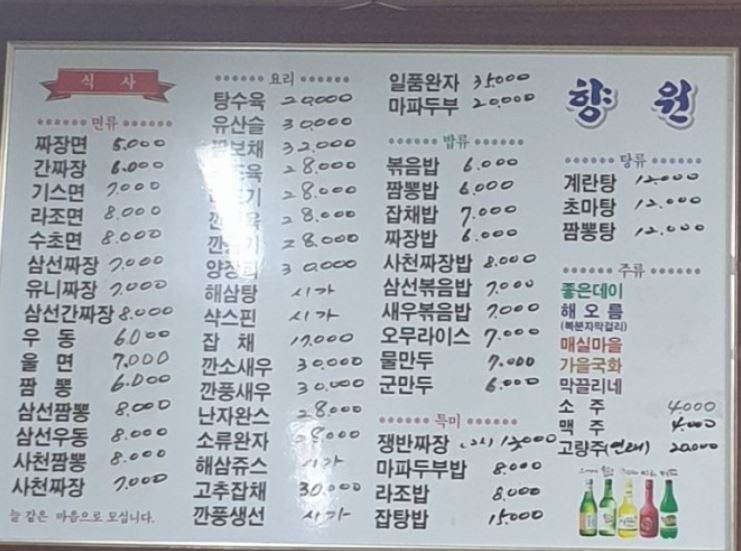 식 사
면류
짜장면 5.000
간짜장 6.000
기스면 7.000
라조면 8.000
수초면 8.000
삼선짜장 7.000
유니짜장 7.000
삼선간짜장 8.000
우 동 6.000
울 면 7.000
짬 뽕 6.000
삼선짬뽕 8.000
삼선우동 8.000
사천짬뽕 8.000
사천짜장 7.000
늘 같은 마음으로 모십니다.
요리
탕수육 20,000
유산슬 30,000
32,000
28.000
28.000
28.000
28.000
30.000
해삼탕 시가
샥스핀 시가
잡 채 17.000
깐소새우 30.000
깐풍새우 30.000
난자완스 28.000
소류완자 28.000
해삼쥬스 시가
고추잡채 30.000
깐풍생선 시가
일품완자 35.000
마파두부 20.000
밥류
볶음밥 6.000
짬뽕밥 6.000
잡채밥 7.000
짜장밥 6.000
사천짜장밥 8.000
삼선볶음밥 7.000
새우볶음밥 7.000
오무라이스 7.000
물만두 7.000
군만두 6.000
특미
쟁반짜장 13.000
마파두부밥 8.000
라조밥 8.000
잡탕밥 15.000
향 원
탕류
계란탕 12.000
초마탕 12.000
짬뽕탕 12.000
주류
좋은데이
해 오 름
(복분자막걸리)
매실마을
가을국화
막끌리네
소 주 4.000
맥 주 4.000
고량주(연태) 20.000